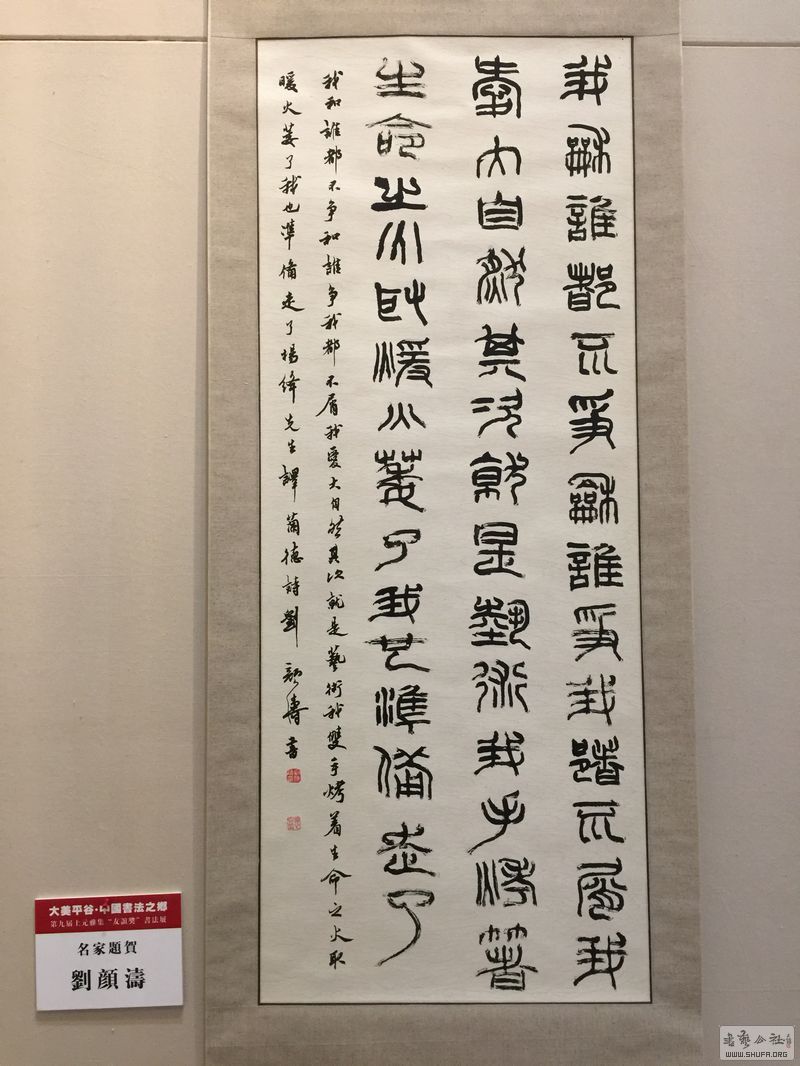 我龢誰都不爭龢誰爭我都不屑我
愛大自然其次就是藝術我手烤著
生命之火取暖火萎了我也準備走了
我和誰都不争和誰争我都不屑我愛大自然其次就是藝術我雙手烤着生命之火取
暖火萎了我也準備走了楊絳先生譯蘭德詩劉顏濤書
大美平谷·中國書法之鄉
第九届上元雅集“友誼獎”書法展
名家題賀
劉顔濤
書藝公社
WWW.SHUFA.ORG